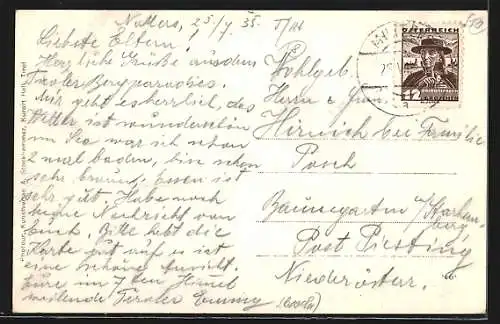 Natters, 25./7. 35.
Liebste Eltern!
Herzliche Grüße aus dem
Tiroler Bergparadies.
Mir geht es herrlich, das
Wetter ist wunderschön
im See war ich schon
2 mal baden, bin schon
sehr braun, Essen ist
sehr gut. Habe noch
keine Nachricht von
Euch. Bitte hebt die
Karte gut auf es ist
eine schöne Ansicht.
Eure im 7 ten Himmel
weilende Tiroler Emmy
Wohlgeb.
Herrn u. Frau
Hirnich bei Familie
Posch
Baumgarten a/
Post Piesting
Niederösterr.
ÖSTERREICH
12 GROSCHEN
Solbad Hall, Tirol